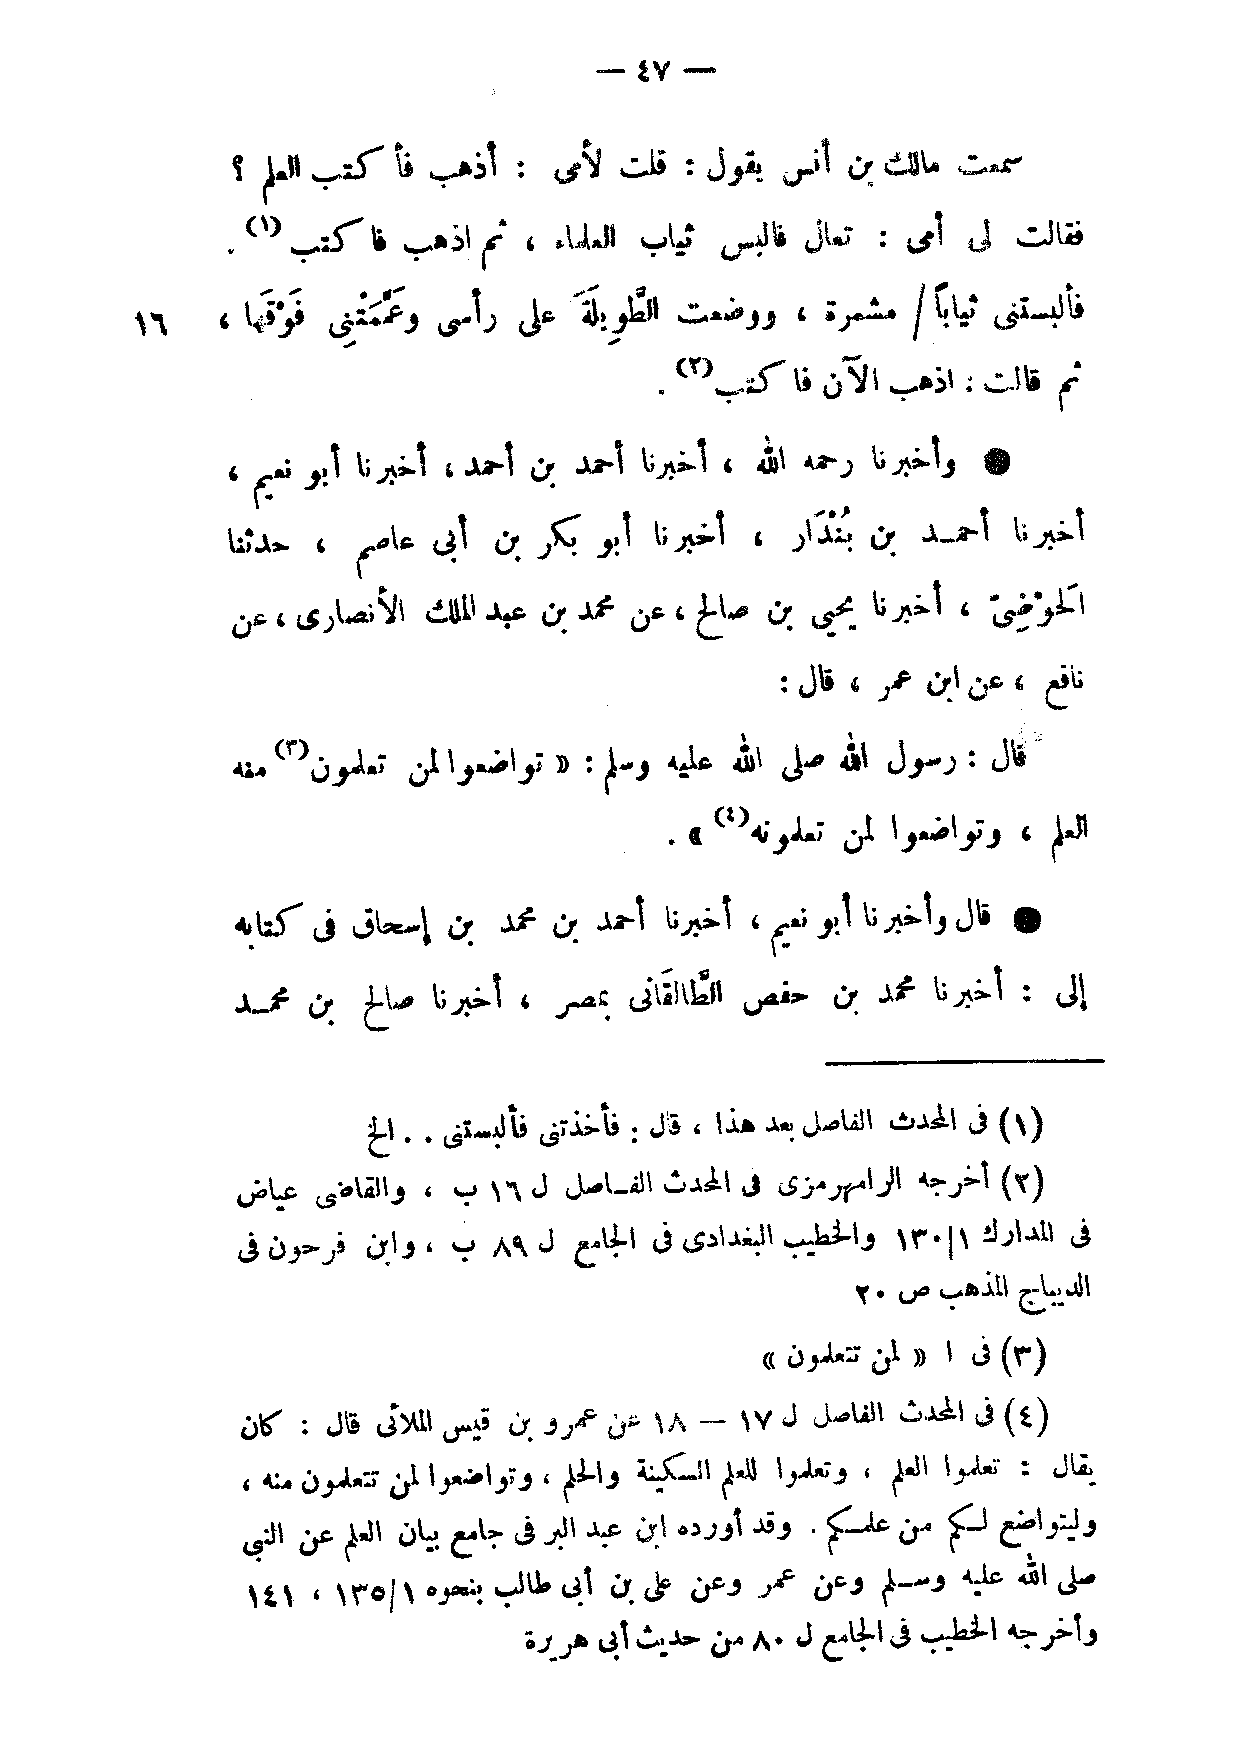 — ٤٧ —
سمعت مالك بن أنس يقول : قلت لأمى : أذهب فأ كتب العلم ؟
فقالت لى أمى : تعال فالبس ثياب العلماء ، ثم اذهب فا كتب(١) .
فألبستنى ثياباً / مشمرة ، ووضعت الطَّوِيلَةَ على رأسى وعَمَّمَتْنِى فَوْقَها ، ١٦
ثم قالت : اذهب الآن فا كتب(٢) .
● وأخبرنا رحمه الله ، أخبرنا أحمد بن أحمد ، أخبرنا أبو نعيم ،
أخبرنا أحمـد بن بُنْدَار ، أخبرنا أبو بكر بن أبى عاصم ، حدثنا
الَحوْضِىّ ، أخبرنا يحيى بن صالح ، عن محمد بن عبد الملك الأنصارى ، عن
نافع ، عن ابن عمر ، قال :
قال : رسول الله صلى الله عليه وسلم : « تواضعوا لمن تعلمون(٣) منه
العلم ، وتواضعوا لمن تعلمونه(٤) » .
● قال وأخبرنا أبو نعيم ، أخبرنا أحمد بن محمد بن إسحاق فى كتابه
إلى : أخبرنا محمد بن حفص الطَّالَقَانى بمصر ، أخبرنا صالح بن محمـد
(١) فى المحدث الفاصل بعد هذا ، قال : فأخذتنى فألبستنى . . الخ
(٢) أخرجه الرامهرمزى فى المحدث الفـاصل ل ١٦ ب ، والقاضى عياض
فى المدارك ١/١٣٠ والخطيب البغدادى فى الجامع ل ٨٩ ب ، وابن فرحون فى
الديباج المذهب ص ٢٠
(٣) فى ا « لمن تتعلمون »
(٤) فى المحدث الفاصل ل ١٧ — ١٨ عن عمرو بن قيس الملائى قال : كان
يقال : تعلموا العلم ، وتعلموا للعلم السكينة والحلم ، وتواضعوا لمن تتعلمون منه ،
وليتواضع لـكم من علمـكم . وقد أورده ابن عبد البر فى جامع بيان العلم عن النبى
صلى الله عليه وسـلم وعن عمر وعن على بن أبى طالب بنحوه ١/١٣٥ ، ١٤١
وأخرجه الخطيب فى الجامع ل ٨٠ من حديث أبى هريرة